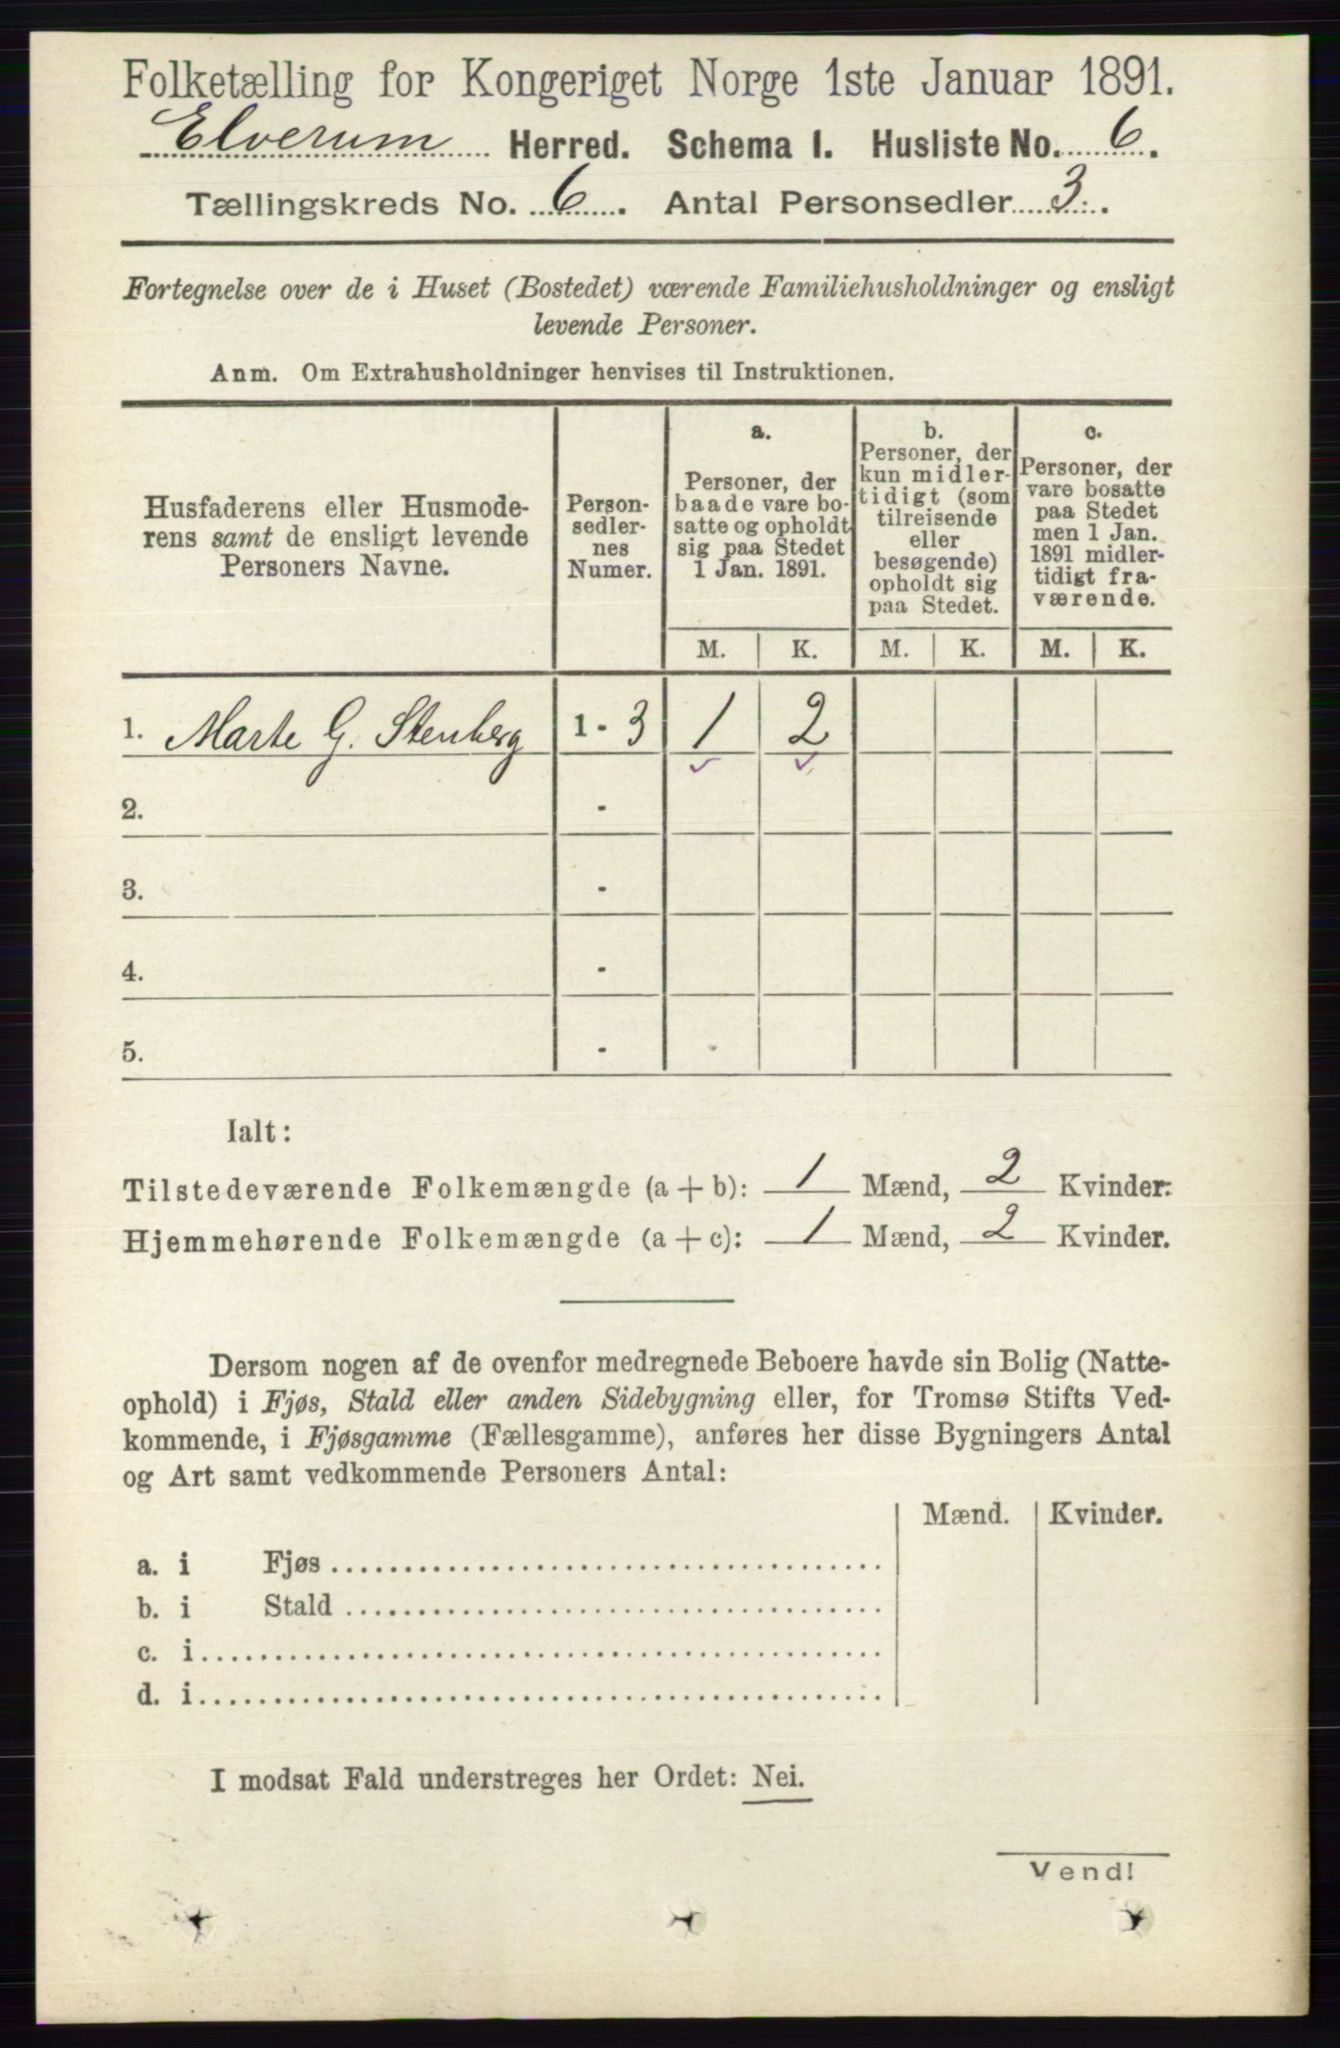 Folketælling for Kongeriget Norge 1ste Januar 1891.
Elverum Herred. Schema I. Husliste No. 6.
Tællingskreds No. 6. Antal Personsedler 3.
Fortegnelse over de i Huset (Bostedet) værende Familiehusholdninger og ensligt
levende Personer.
Anm. Om Extrahusholdninger henvises til Instruktionen.
Husfaderens eller Husmode-
rens samt de ensligt levende
Personers Navne.
Person-
sedler-
nes
Numer.
a.
Personer, der
baade vare bo-
satte og opholdt
sig paa Stedet
1 Jan. 1891.
b.
Personer, der
kun midler-
tidigt (som
tilreisende
eller
besøgende)
opholdt sig
paa Stedet.
c.
Personer, der
vare bosatte
paa Stedet
men 1 Jan.
1891 midler-
tidigt fra-
værende.
M. K. M. K. M. K.
1. Marte G. Stenberg 1 - 3 1 2
2. -
3. -
4. -
5. -
Ialt:
Tilstedeværende Folkemængde (a + b): 1 Mænd, 2 Kvinder.
Hjemmehørende Folkemængde (a + c): 1 Mænd, 2 Kvinder.
Dersom nogen af de ovenfor medregnede Beboere havde sin Bolig (Natte-
ophold) i Fjøs, Stald eller anden Sidebygning eller, for Tromsø Stifts Ved-
kommende, i Fjøsgamme (Fællesgamme), anføres her disse Bygningers Antal
og Art samt vedkommende Personers Antal:
Mænd. Kvinder.
a. i Fjøs
b. i Stald
c. i
d. i
I modsat Fald understreges her Ordet: Nei.
Vend!